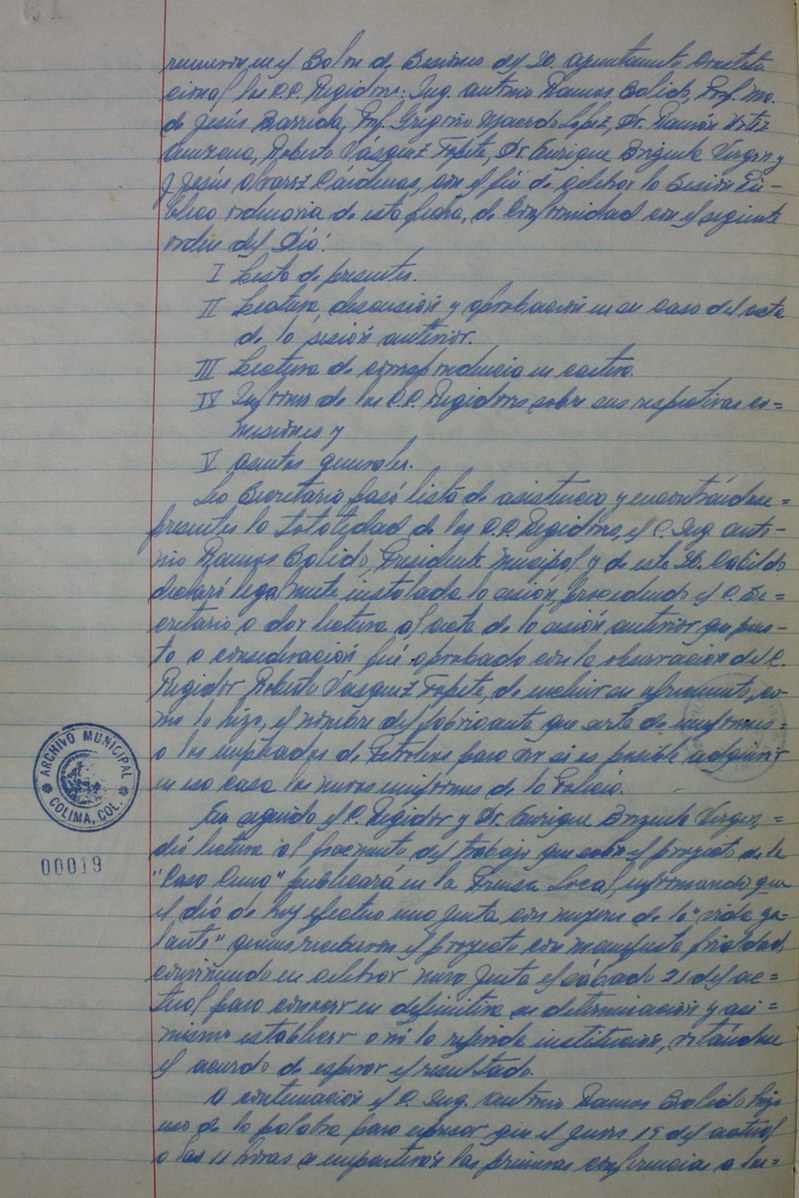 reunieron en el Salon de Sesiones del H. Ayuntamiento Constitu
cional los C.C. Regidores: Ing. Antonio Ramos Salido, Prof. Ma.
de Jesús Barreda, Prof. Gregorio Macedo López, Dr. Ramón Ortiz
Roberto Vásquez Topete, Dr. Enrique Brizuela Virgen y
J. Jesús Alvarez Cárdenas, con el fin de celebrar la Sesión Pú-
blica ordinaria de esta fecha, de conformidad con el siguiente
orden del Día:
I Lista de presentes.
II Lectura, discusión y aprobación en su caso del acta
de la sesión anterior.
III Lectura de correspondencia en cartera.
IV Informes de los C.C. Regidores sobre sus respectivas co=
misiones y
V asuntos generales.
La Secretaria pasó lista de asistencia y encontrándose=
presentes la totalidad de los C.C. Regidores, el C. Ing. Anto-
nio Ramos Salido, Presidente Municipal y de este H. Cabildo
declaró legalmente instalada la sesión, procediendo el C. Se=
cretario a dar lectura al acta de la sesión anterior que pues-
ta a consideración fué aprobada con la observación del C.
Regidor Roberto Vásquez Topete, de incluir su ofrecimiento, co-
mo lo hizo, el nombre del fabricante que surte de uniformes-
a los empleados de Petroleos para ver si es posible adquirir
en esa casa los nuevos uniformes de la Policía.
En seguida el C. Regidor y Dr. Enrique Brizuela Virgen,=
dió lectura al fragmento del trabajo que sobre el proyecto de la
"Casa Cuna" publicará en la Prensa Local, informando que
el día de hoy efectuo una junta con mujeres de la "vida ga-
lante" quienes recibieron el proyecto con manifiesta frialdad,
conviniendo en celebrar nueva junta el sábado 21 del ac=
tual para conocer en definitiva su determinación y asi=
mismo establecer o nó la referida institución, votándose
el acuerdo de esperar el resultado.
A continuación el C. Ing. Antonio Ramos Salido hizo
uso de la palabra para expresar que el jueves 19 del actual
a las 11 horas se impartirán las primeras conferencias a
ARCHIVO MUNICIPAL
COLIMA, COL.
00019